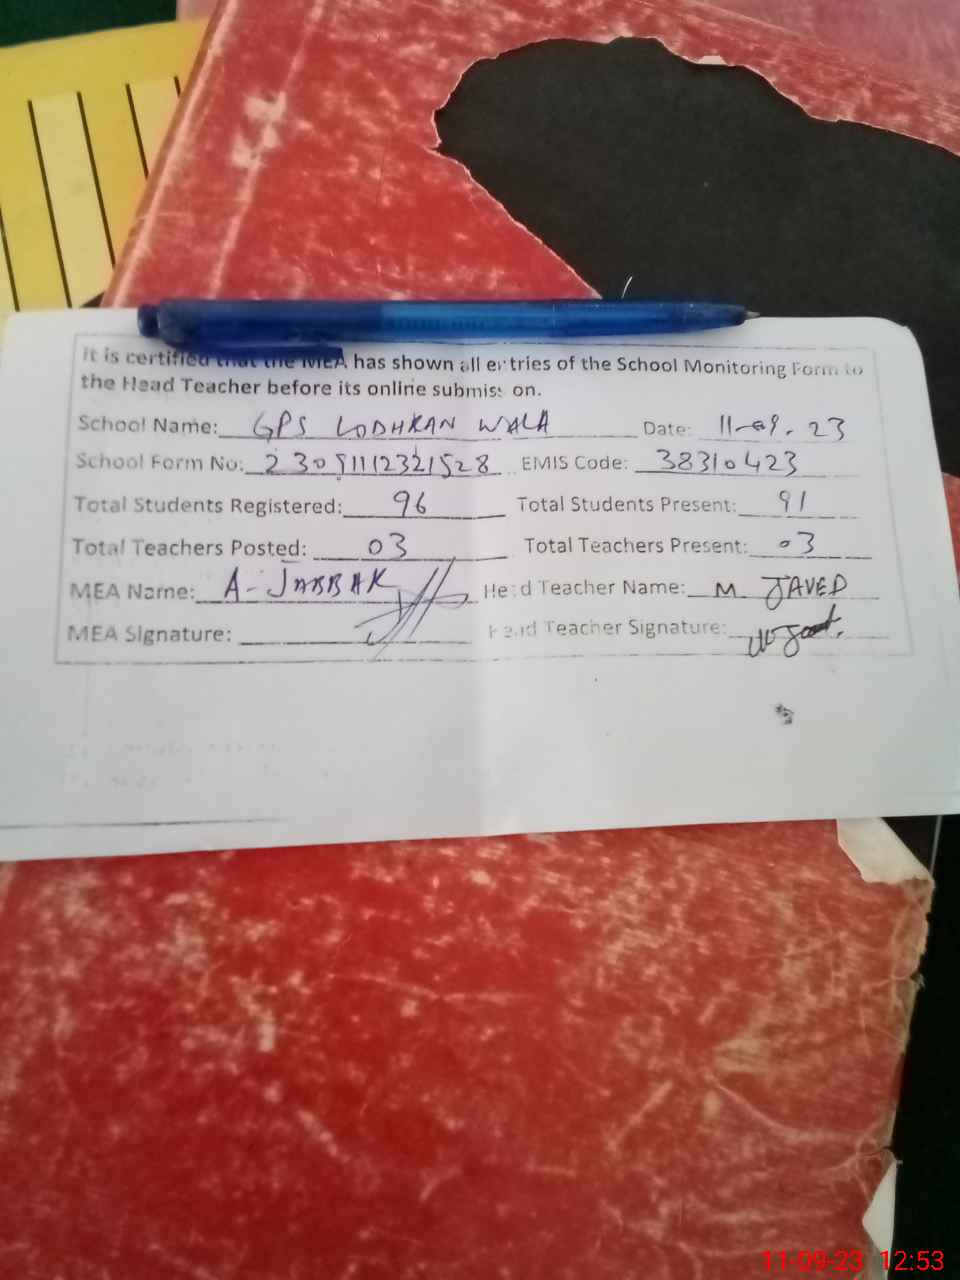 It is certified that the MEA has shown all entries of the School Monitoring Form to
the Head Teacher before its online submission.
School Name: GPS LODHRAN WALA Date: 11-09-23
School Form No: 230911112321528 EMIS Code: 38310423
Total Students Registered: 96 Total Students Present: 91
Total Teachers Posted: 03 Total Teachers Present: 03
MEA Name: A-JABBAR Head Teacher Name: M JAVED
MEA Signature: Head Teacher Signature:
11-09-23 12:53